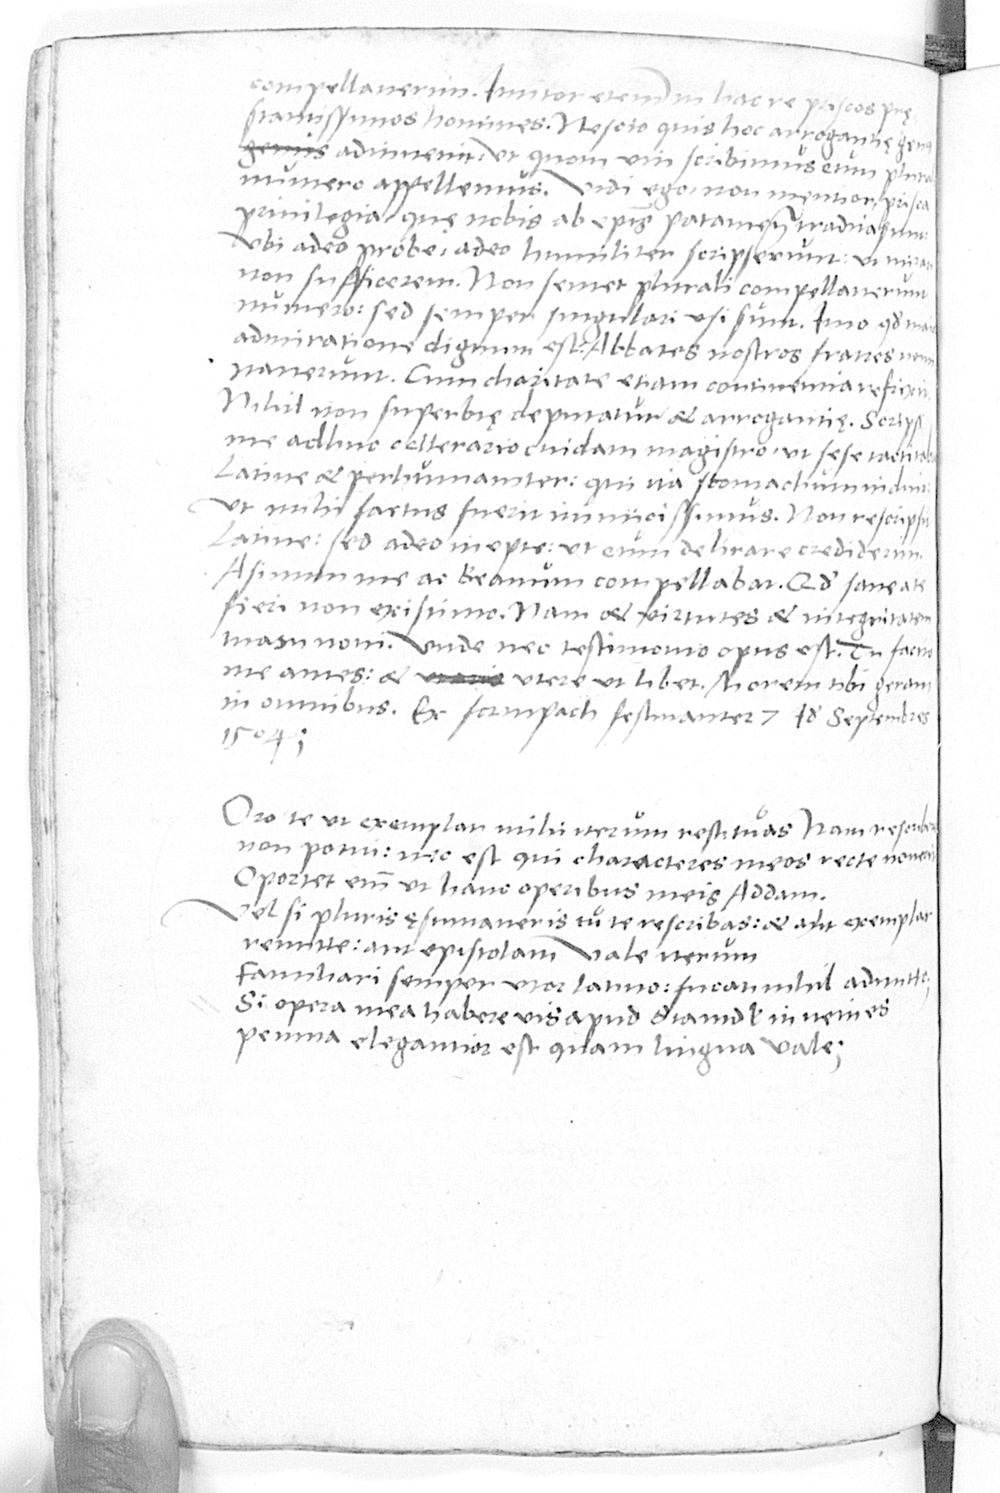 compellauerim. Imitor etenim in hac re priscos prę
stantissimos homines. Nescio quis hoc arrogantię genus
genus adinuenit: vt quom vni scribimus eum plurali
numero appellemus. Vidi ego, non mentior, prisca
priuilegia, quę nobis ab epis patauien tradita sunt:
Vbi adeo probe, adeo humiliter scripserunt: vt mirari
non sufficerem. Non semet plurali compellauerunt
numero: sed semper singulari vsi sunt. Imo qd
admiratione dignum est: Abbates nostros fratres nomi
nauerunt. Cum charitate etiam continentia refrixit.
Nihil non superbię deputatur & arrogantię. Scripsi
me adhuc celterario cuidam magistro, vt sese
Latine & perhumaniter: qui ita stomachum induit:
Vt mihi factus fuerit inimicissimus. Non rescripsit
Latine: sed adeo inepte: vt eum delirare crediderim.
Asinum me ac Beanum compellabat. Qd sane a te
fieri non existimo. Nam & virtutes & integritatem
tuam noui. Vnde nec testimonio opus est. Tu facito
me ames: & vtere vt libet. Morem tibi geram
in omnibus. Ex formpach festinanter 7 Id Septembres
1504;
Oro te vt exemplar mihi iterum restituas Nam rescribere
non potui: nec est qui characteres meos recte nouerit
Oportet em vt hanc operibus meis Addam.
Vel si pluris ęstimaueris tu te rescribas: & aut exemplar
remitte: aut epistolam Vale iterum
Familiari semper vtor latino: fucati nihil admitto;
Si opera mea habere vis apud in
penna elegantior est quam lingua Vale;